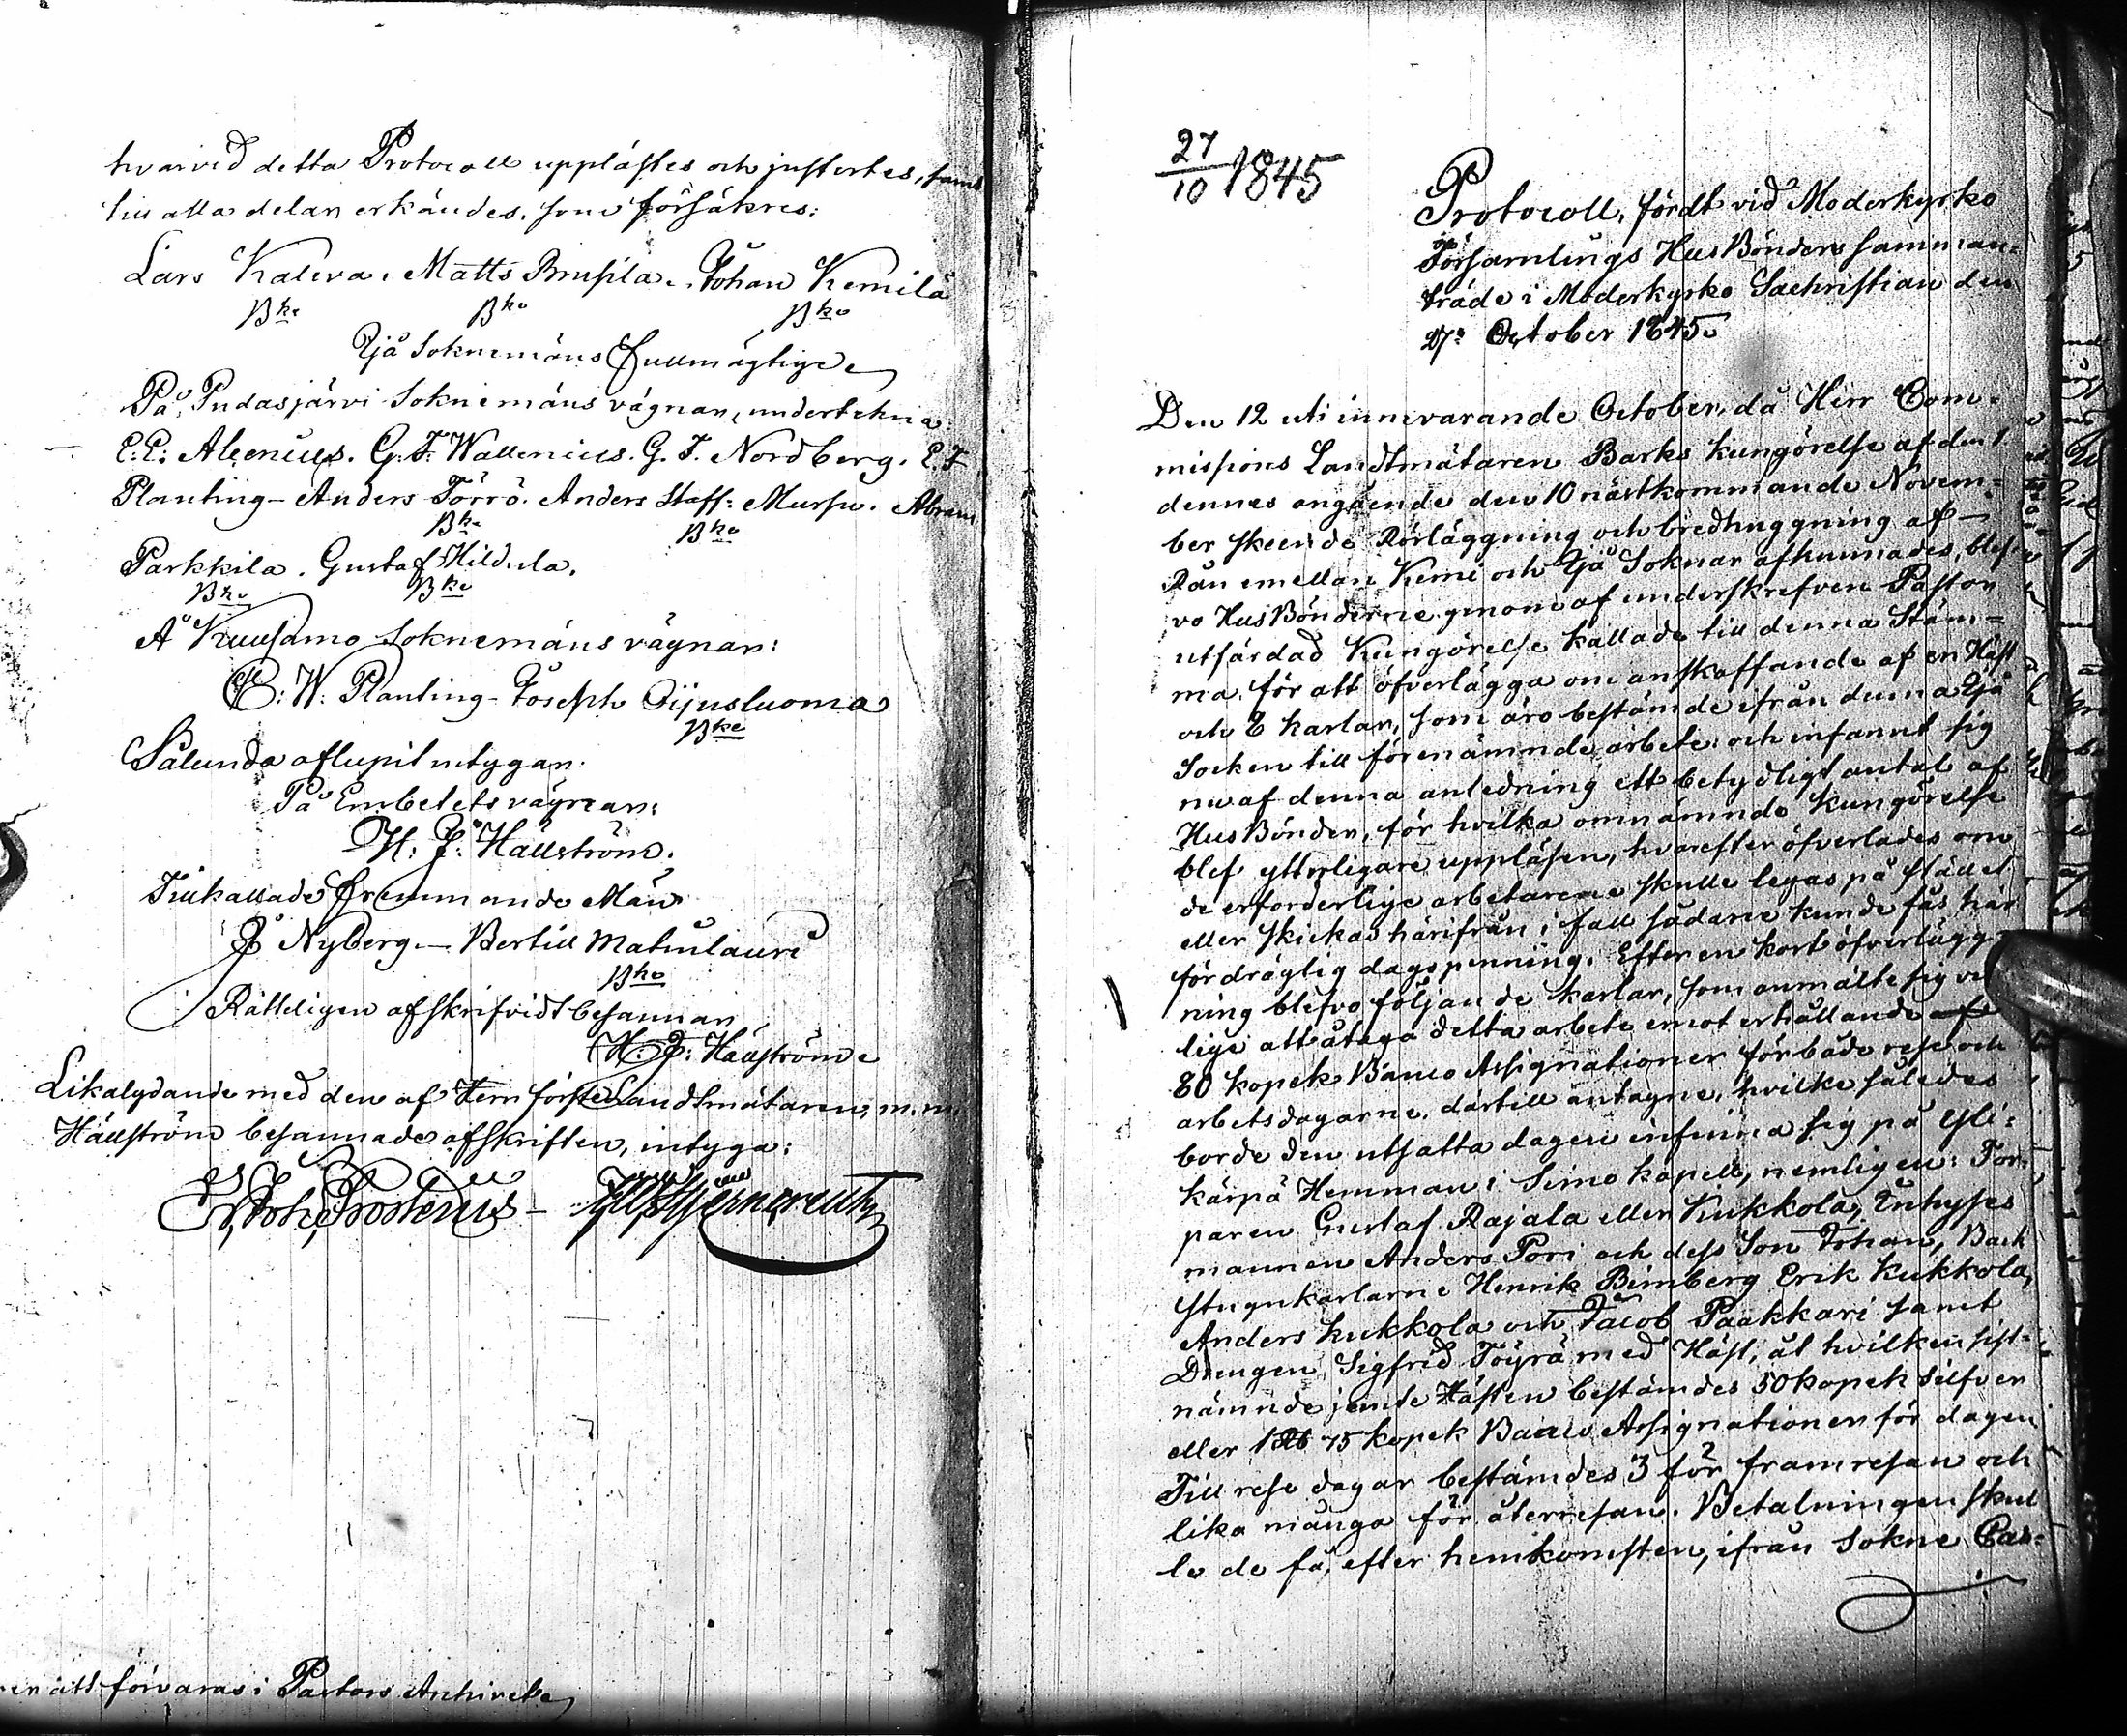 hvarvid detta Protocoll upplästes och justertes, samt
till alla delar erkändes, som försäkres:
Lars Kaleva. Matts Prusila. Johan Kemilä
Bke Bke Bke
Ijå Soknemäns Fullmägtige
På Pudasjärvi Soknemäns vägnar, undertekna:
E. E. Alcenius. G. F. Wallenius. G. F. Nordberg. E. F
Planting - Anders Törrö. Anders Staff: Mursu. Abram
Bke Bke
Parkkila. Gustaf Hildula.
Bke Bke
Å Kuusamo Soknemäns vägnar:
E: W: Planting - Joseph Oijusluoma
Bke
Sålunda aflupit intygar.
På Embetets vägnar:
H: J: Hällström.
Tillkallade Fremmande Män
J Nyberg — Bertill Matinlauri
Bke
Rätteligen afskrifvidt besannar
H: J: Hällström
Likalydande med den af Herr förste Landtmätaren, m.m.
Hällström besannade afskriften, intyga:
Joh, Frosterus -
en att förvaras i Pastors Archivet
27/10 1845
Protocoll, fördt vid Moderkyrko
Församlings HusBönders samman-
träde i Moderkyrko Sachristian den
27: October 1845.
Den 12 uti innevarande October, då Herr Com-
missions Landtmätaren Barks kungörelse af den 1
dennes angående den 10 nästkommande Novem-
ber skeende Rörläggning och bredhuggning af —
Rån emellan Kemi och Ijå Soknar afkunnades, blef-
vo HusBönderne genom af underskrefven Pastor
utfärdad Kungörelse kallade till denna Stäm-
ma, för att öfverlägga om anskaffande af en Häst
och 8 karlar, som äro bestämde ifrån denna Ijå
Socken till förenämnde arbete: och infannt sig
nu af denna anledning ett betydligt antal af
HusBönder, för hvilka omnämnde Kungörelse
blef ytterligare uppläsen, hvarefter öfverlades om
de erforderlige arbetarene skulle legas på stället
eller skickas härifrån, i fall sådane kunde fås här
för dräglig dagspenning. Efter en kort öfverlägg-
ning blefvo följande karlar, som anmälte sig vil
lige att åtaga detta arbete emot erhållande af
80 kopek Banco Assignationer för både rese och
arbetsdagarne, därtill antagne, hvilke således
borde den utsatta dagen infinna sig på Yli-
kärpä Hemman i Simo kapell, nemligen: Tor-
paren Gustaf Rajala eller Kukkola, Inhyses
mannen Anders Pori och dess Son Johan, Back
stugukarlarne Henrik Bimberg Erik Kukkola,
Anders Kukkola och Jacob Paakkari samt
Drengen Sigfrid Töyrä med Häst, åt hvilken sist-
nämnde jemte Hästen bestämdes 50 kopek Silfver
eller 1 Rb 75 kopek Banco Assignationer för dagen
Till rese dagar bestämdes 3 för framresan och
lika många för återresan. Betalningen skul
le de få, efter hemkomsten, ifrån Sokne Cas-